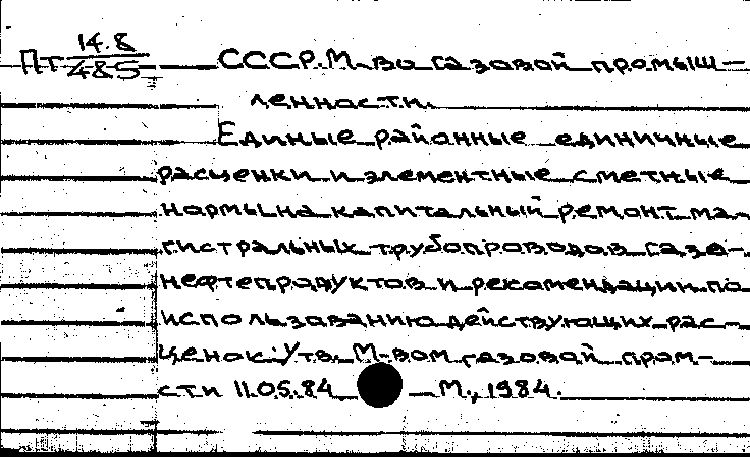 14.8
Пт 485 СССР. М-во газовой промыш-
ленности.
Единые районные единичные
расценки и элементные сметные
нормы на капитальный ремонт ма-
гистральных трубопроводов газо-
нефтепродуктов и рекомендации по
использованию действующих рас-
ценок: Утв. М-вом газовой пром-
сти 11.05.84 — М., 1984.